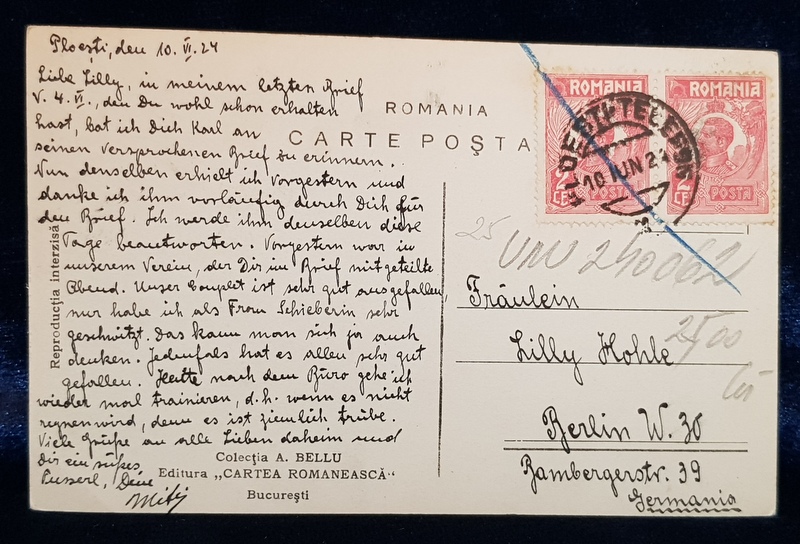 Ploești, den 10.VI.24
Liebe Lilly, in meinem letzten Brief
v. 4.VI., den Du wohl schon erhalten
hast, bat ich Dich Karl an
seinen versprochenen Brief zu erinnern.
Nun denselben erhielt ich vorgestern und
danke ich ihm vorläufig durch Dich für
den Brief. Ich werde ihm denselben diese
Tage beantworten. Vorgestern war in
unserem Verein, der Dir im Brief mitgeteilte
Abend. Unser Couplet ist sehr gut ausgefallen,
nur habe ich als Frau Schieberin sehr
geschwitzt. Das kann man sich ja auch
denken. Jedenfals hat es allen sehr gut
gefallen. Heute nach dem Büro gehe ich
wieder mal trainieren, d.h. wenn es nicht
regnen wird, denn es ist ziemlich trübe.
Viele Grüße an alle Lieben daheim und
Dir ein süßes
Pusserl, Deine
Mitzi
Reproducția interzisă
ROMANIA
CARTE POȘTA
ROMANIA
POSTA
ROMANIA
POSTA
PLOEȘTI-TELEGR
10 IUN 24
25
240062
2500
lei
Fräulein
Lilly Hohle
Berlin W. 30
Bambergerstr. 39
Germania
Colecția A. BELLU
Editura „CARTEA ROMANEASCĂ"
București